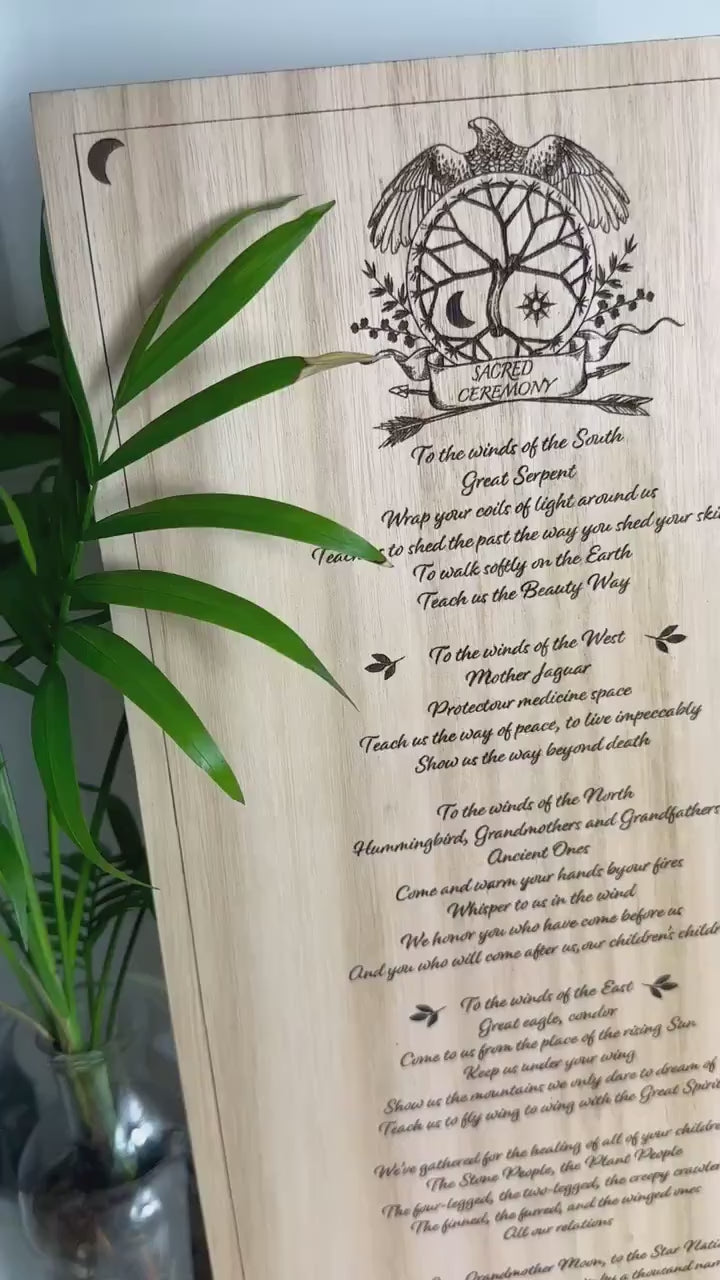 SACRED
CEREMONY
To the winds of the South
Great Serpent
Wrap your coils of light around us
to shed the past the way you shed your
To walk softly on the Earth
Teach us the Beauty Way
To the winds of the West
Mother Jaguar
Protectour medicine space
Teach us the way of peace, to live impeccably
Show us the way beyond death
To the winds of the North
Hummingbird, Grandmothers and Grandfathers
Ancient Ones
Come and warm your hands byour fires
Whisper to us in the wind
We honor you who have come before us
And you who will come after us,our children's
To the winds of the East
Great eagle, condor
Come to us from the place of the rising Sun
Keep us under your wing
Show us the mountains we only dare to dream of
Teach us to fly wing to wing with the Great Spirit
We've gathered for the healing of all of your
The Stone People, the Plant People
The four-legged, the two-legged, the creepy
The finned, the furred, and the winged ones
All our relations
Grandmother Moon, to the Star
by a thousand